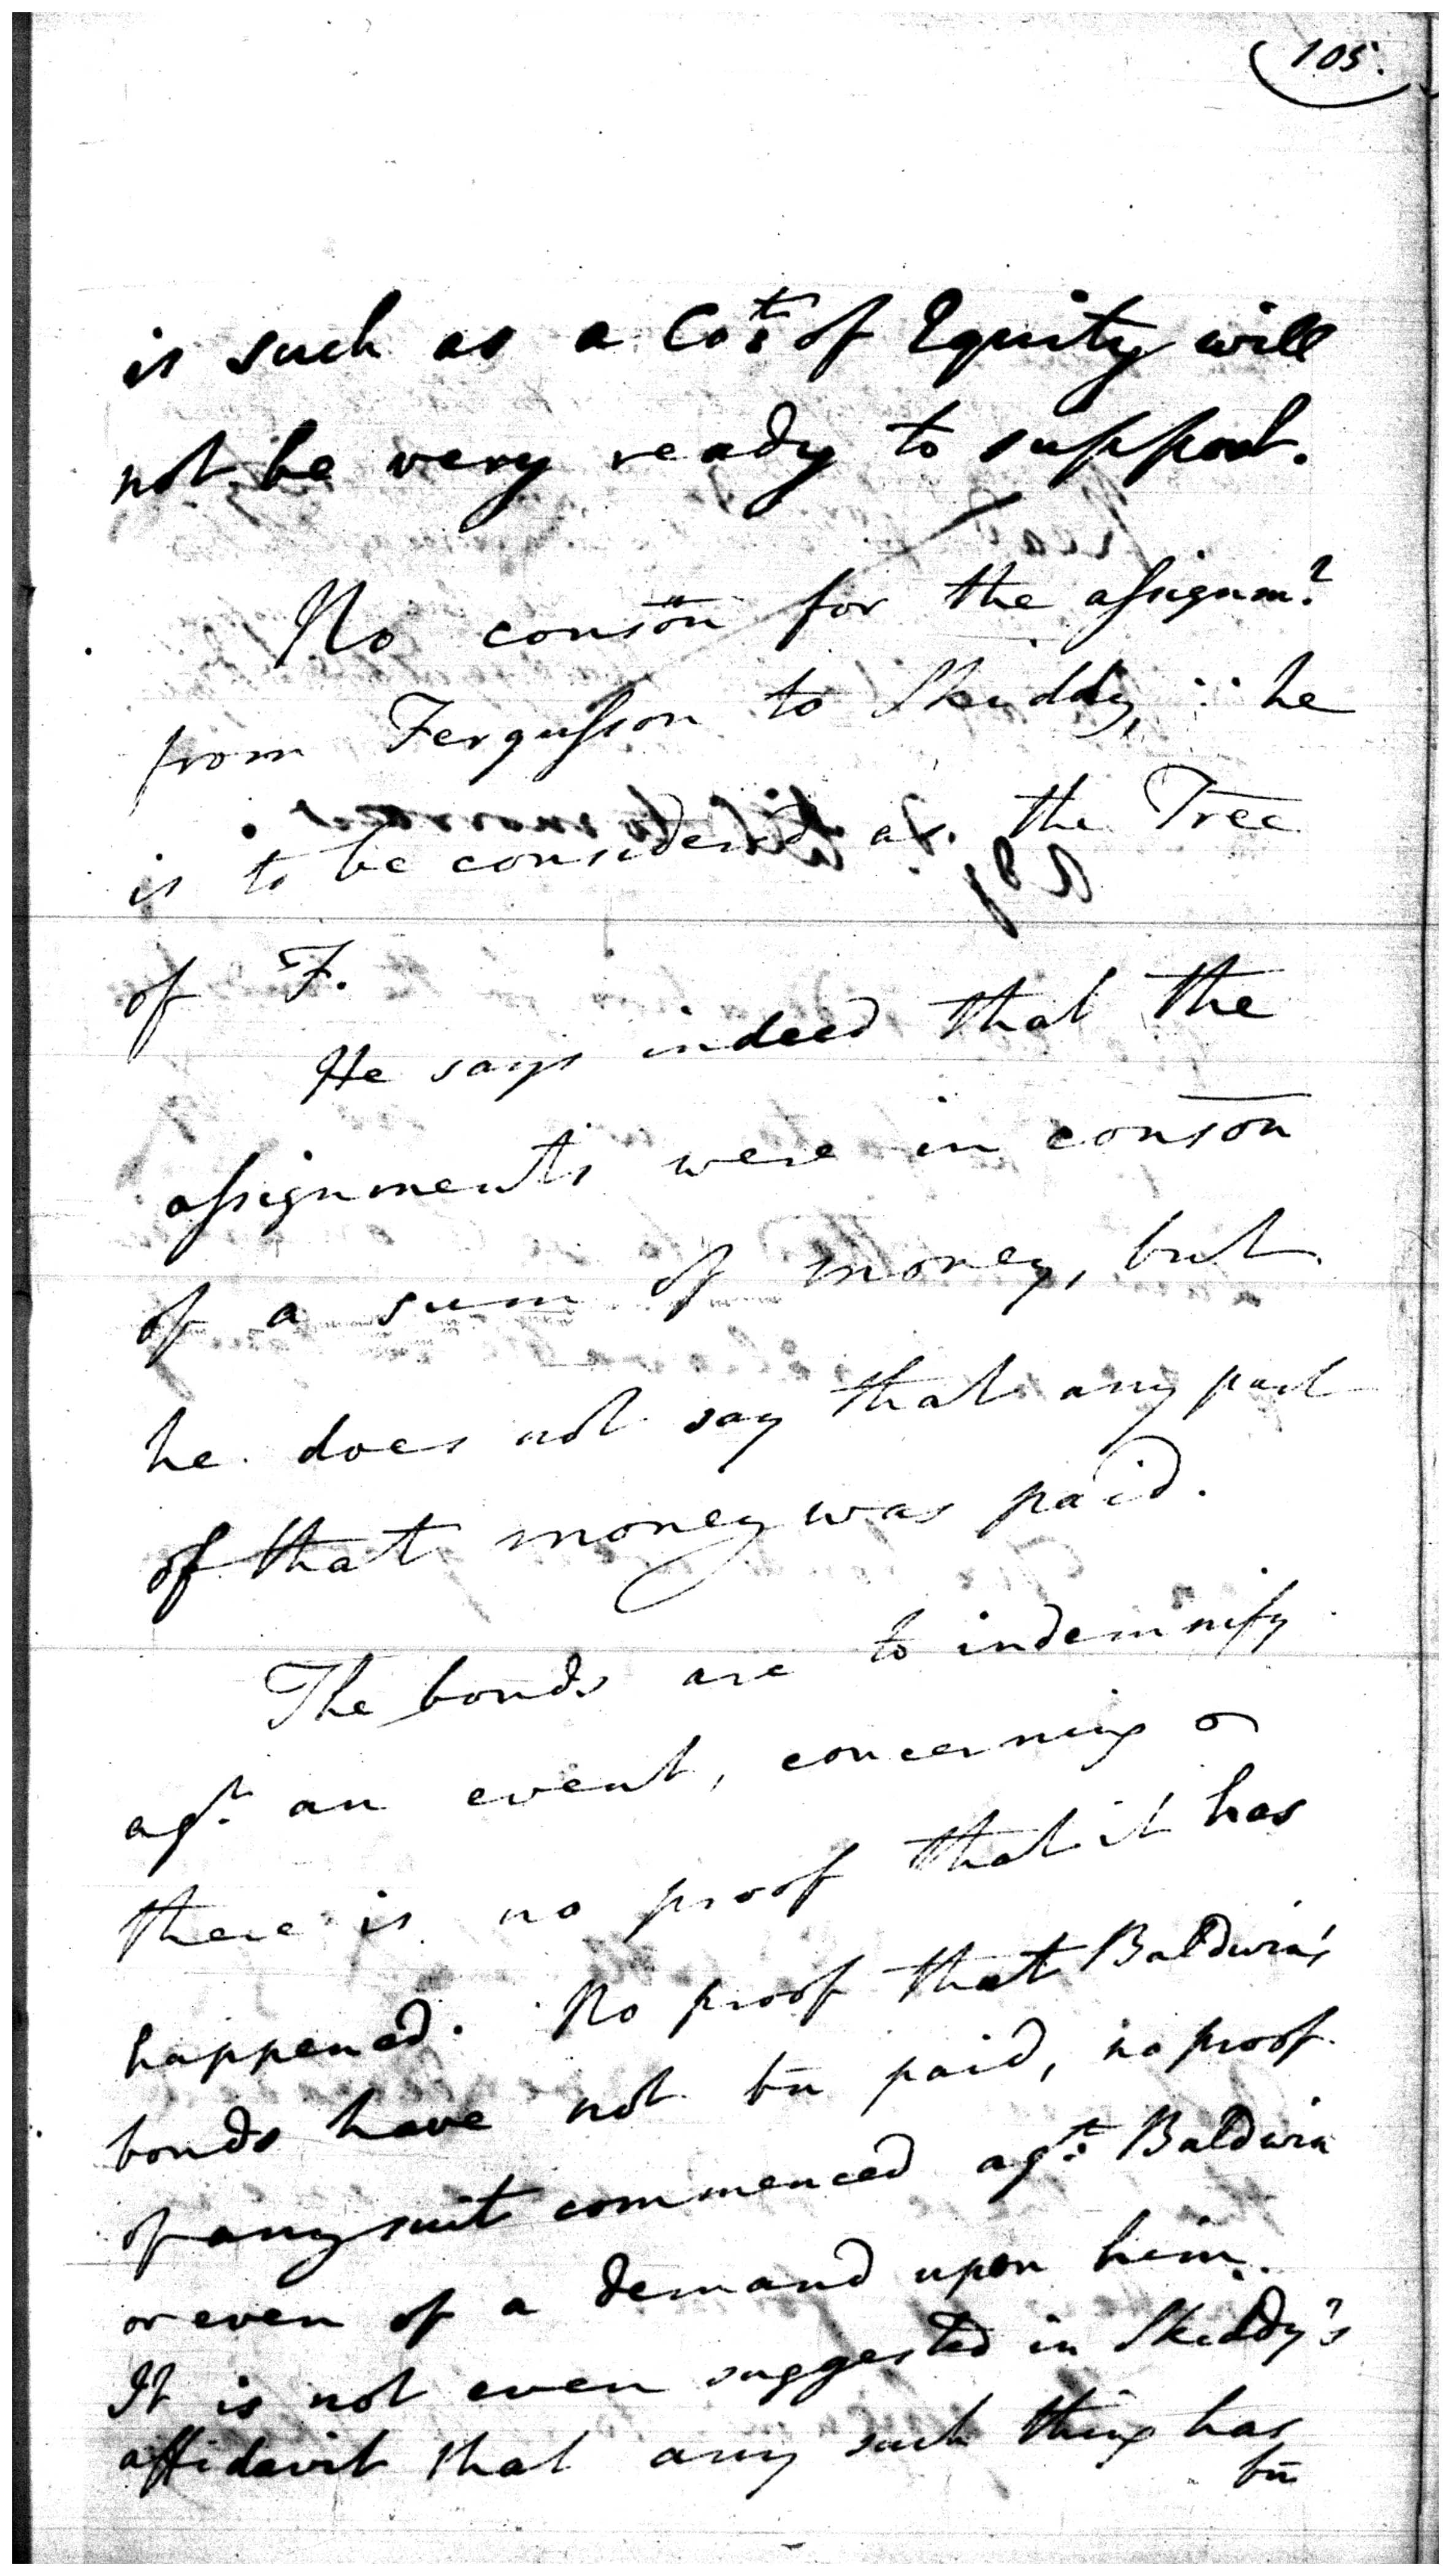 105.
is such as a Co:t of Equity will
not be very ready to support.
No conson for the assignm.t
from Fergusson to Skiddy, ∵ he
is to be considered as the Tree
of F.
He says indeed that the
assignments were in conson
of a sum of money, but
he does not say that any part
of that money was paid.
The bonds are to indemnify
ag.t an event, concerning
there is no proof that it has
happened. No proof that Baldwin's
bonds have not bn paid, no proof
of any suit commenced ag:t Baldwin
or even of a demand upon him.
It is not even suggested in Skiddy's
affidavit that any such thing has
bn